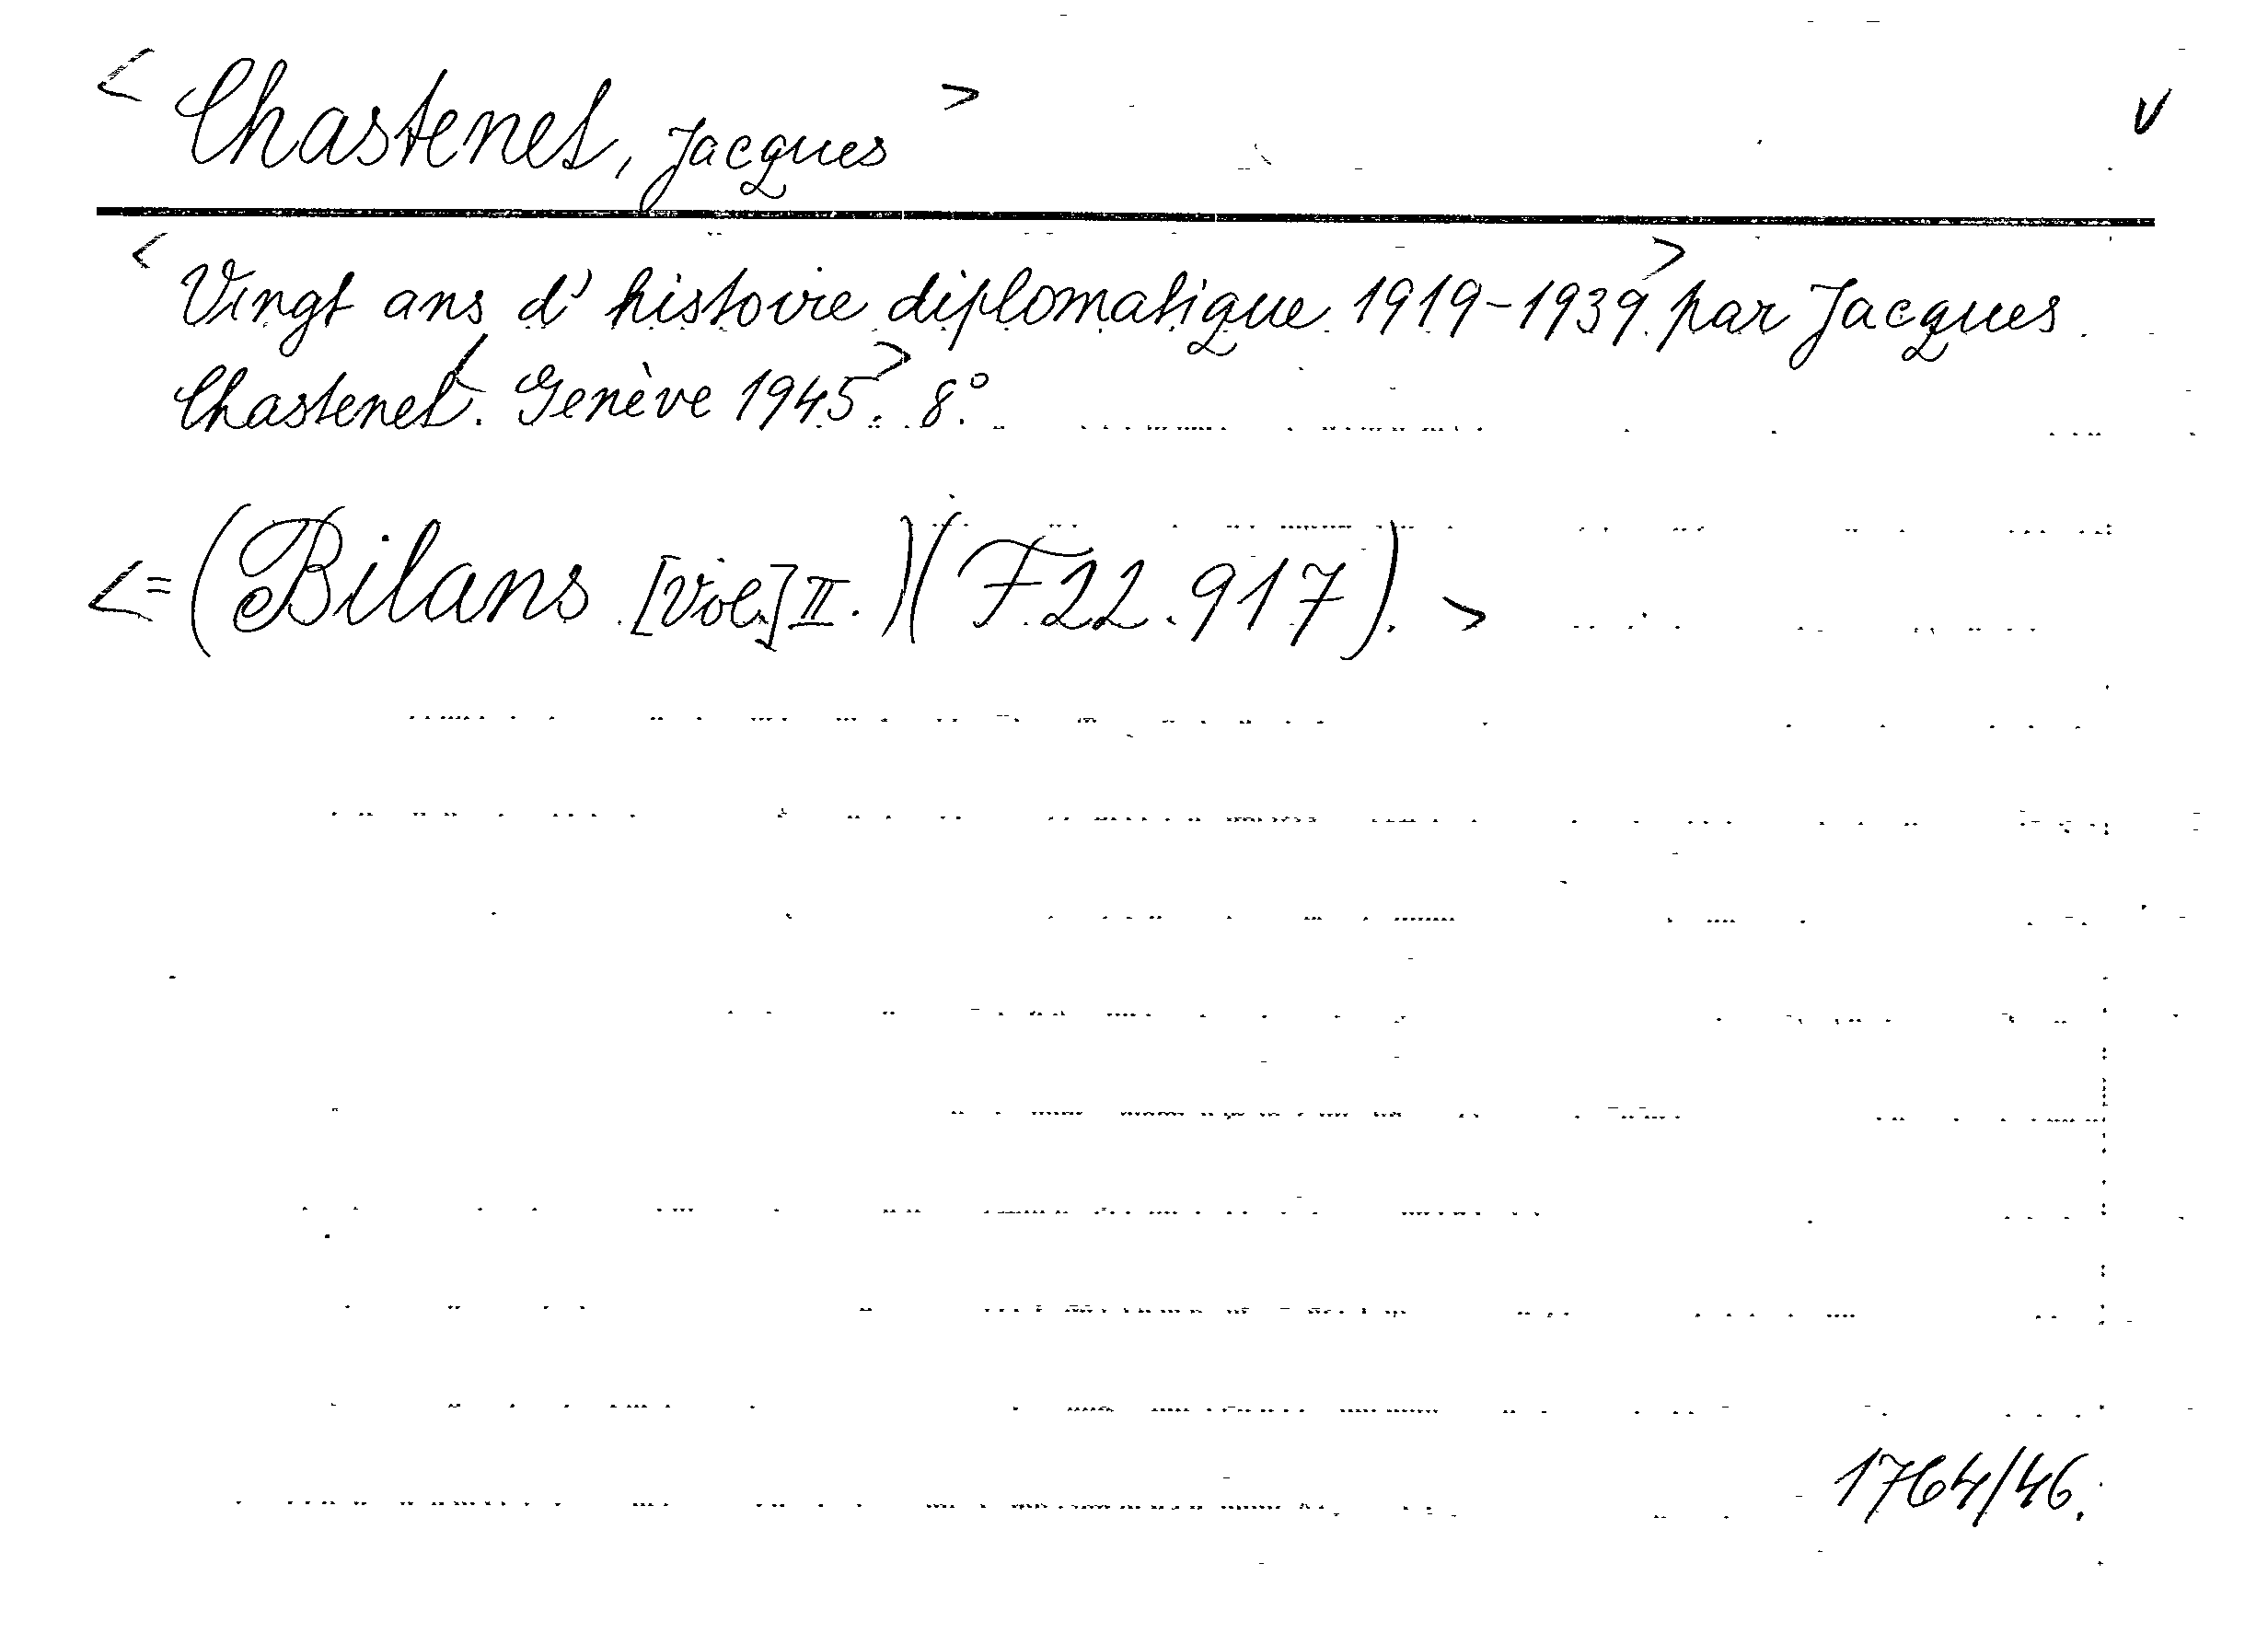 < Chastenet, Jacques >
< Vingt ans d'histoire diplomatique 1919-1939> par Jacques
Chastenet<. Genève 1945>. 8°.
<= (Bilans. [Vol.] II.) (F 22.917). >
1764/46.